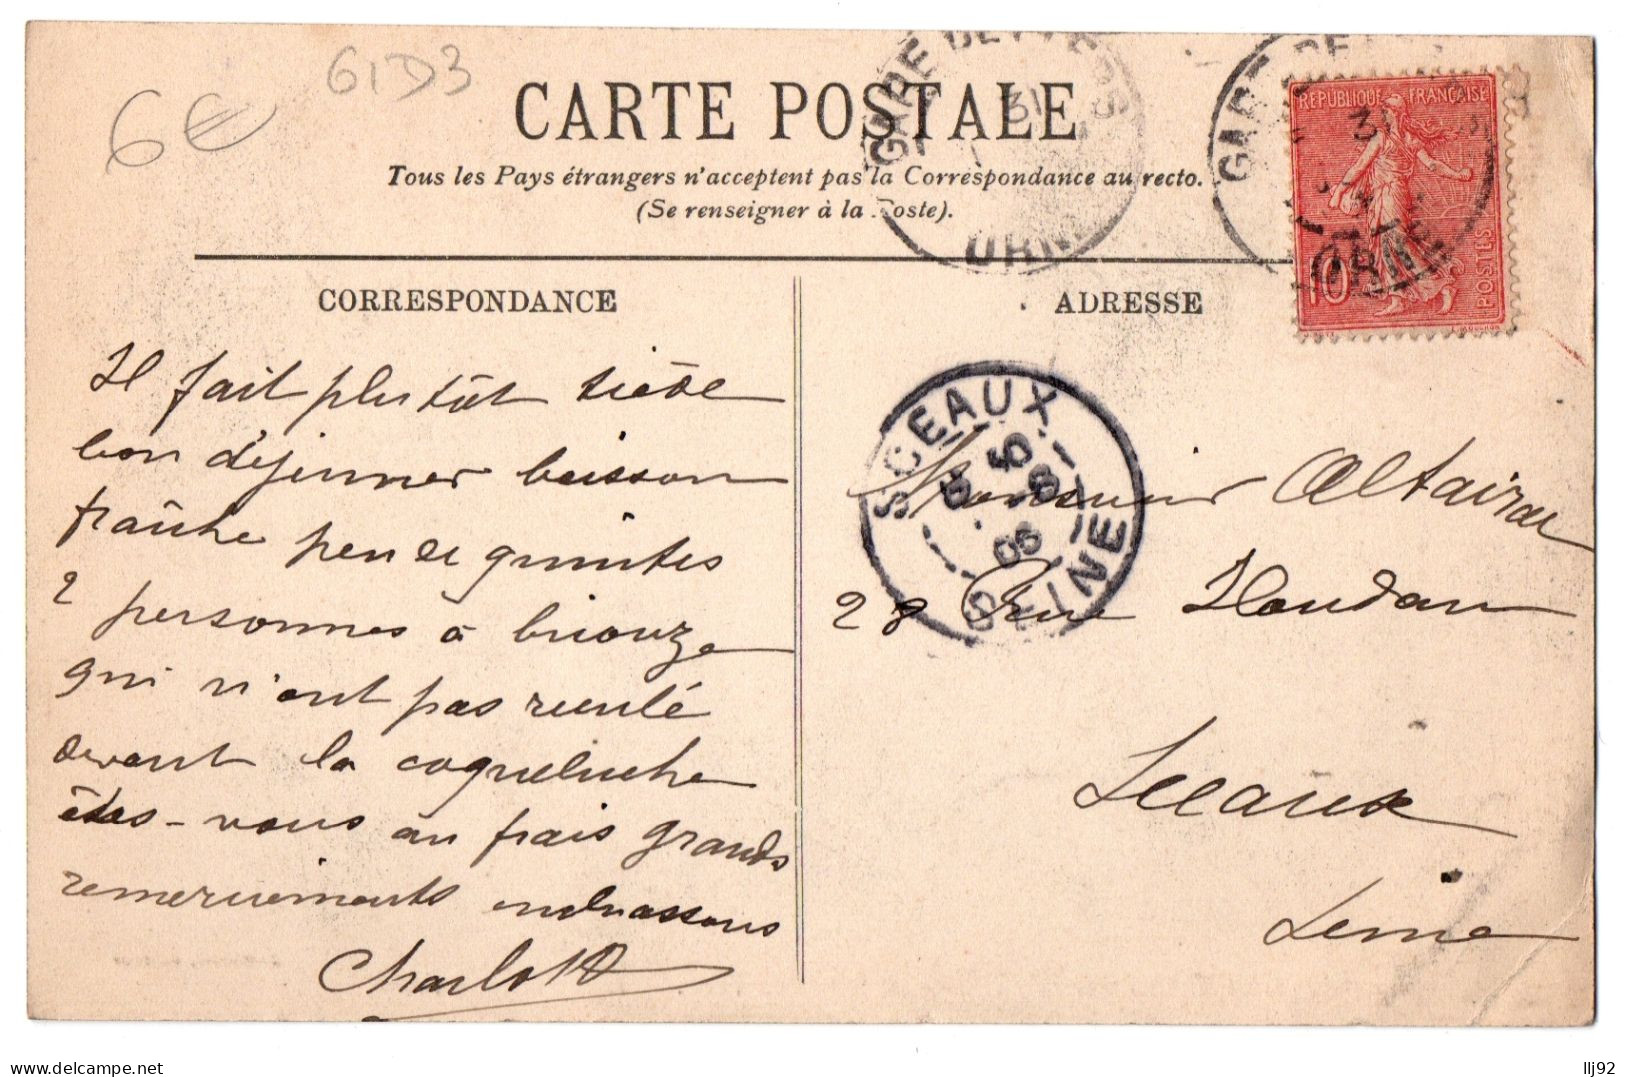 61D3
6€
CARTE POSTALE
Tous les Pays étrangers n'acceptent pas la Correspondance au recto.
(Se renseigner à la Poste).
GARE DE
31
ORNE
GARE DE
ORNE
REPUBLIQUE FRANÇAISE
10
POSTES
CORRESPONDANCE
ADRESSE
SCEAUX
SEINE
Il fait plutôt tiède
bon déjeuner boisson
fraîche peu de
2 personnes à briouze
qui n'ont pas reculé
devant la coqueluche
êtes-vous au frais grands
remerciements embrassons
Charlotte
Monsieur Altairac
28 Rue Houdan
Sceaux
Seine
llj92